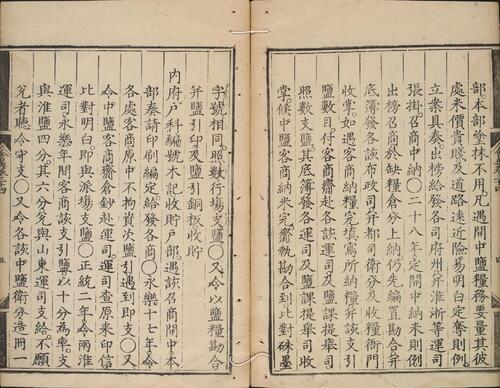 部本部塗抹不用凡遇開中鹽糧務要量其彼
處米價貴賤及道路遠近險易明白定奪則例
立案具奏出榜給發各司府州并淮浙等運司
張掛召商中納〇二十八年定開中納米則例
出榜召商於缺糧倉分上納仍先編置勘合并
底簿發各該布政司并都司衛分及收糧衙門
收掌如遇客商納糧完填寫所納糧并該支引
鹽數目付客商齎赴各該運司及鹽課提舉司
照數支鹽其底簿發各運司及鹽課提舉司收
掌候中鹽客商納米完齎執勘合到比對硃墨
字號相同照數行場支鹽〇又令以鹽糧勘合
并鹽引印及鹽引銅板收貯
內府戶科編號木記收貯戶部遇該召商開中本
部奏請印刷編定給發各商〇永樂十七年令
各處客商原中不拘資次鹽引遇到即支〇又
令中鹽客商齎倉鈔赴運司查原來印信
比對明白即與派場支鹽〇正統二年令兩淮
運司永樂年間客商該支引鹽以十分為率支
與淮鹽四分其六分兌與山東運司支給不願
兌者聽令守支〇又令各該中鹽衛分造冊一